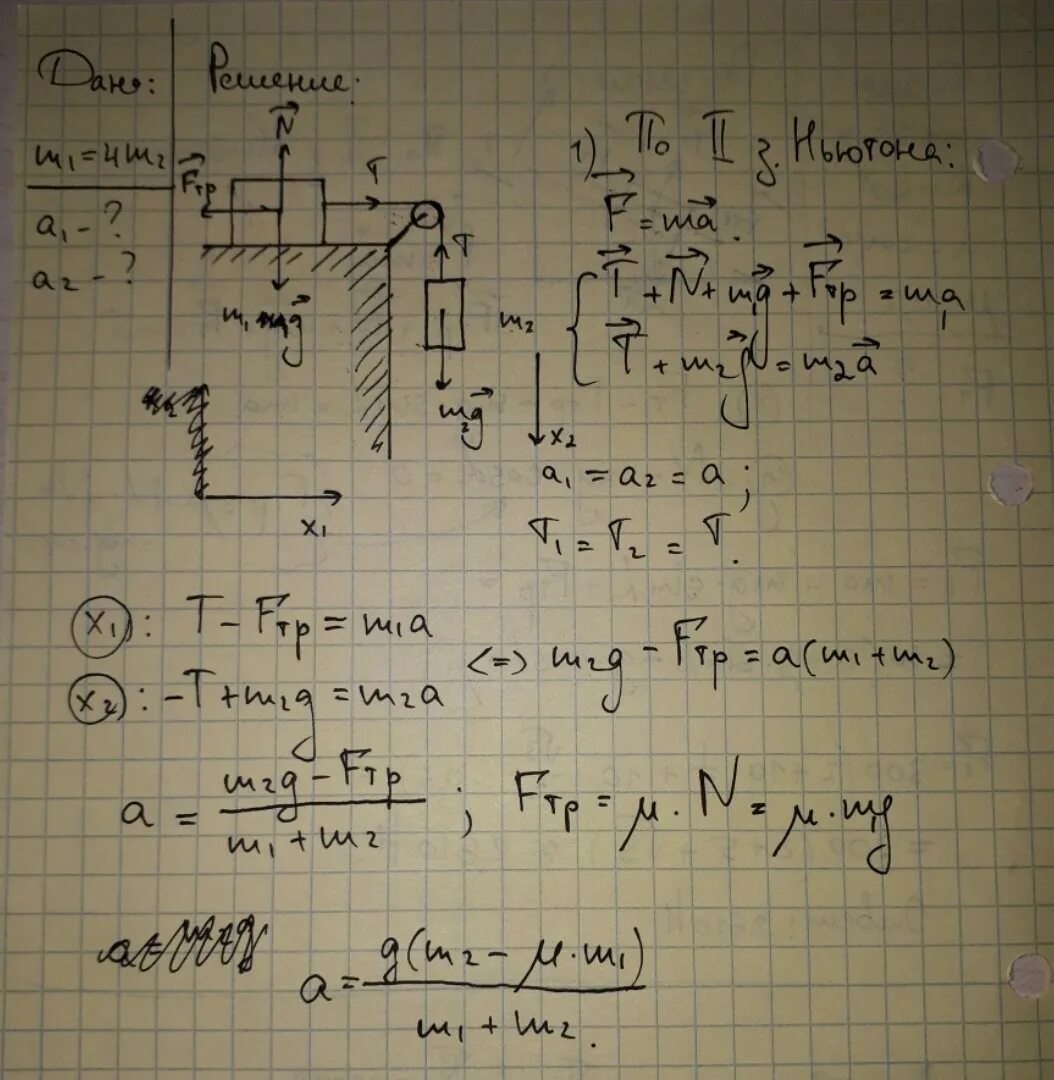 Дано:
m₁ = 4m₂
a₁ - ?
a₂ - ?
Решение:
N⃗
F⃗тр
T
T
m₁g⃗
m₂
m₂g⃗
x₂
x₁
1) По II з. Ньютона:
F⃗ = ma⃗.
{ T⃗ + N⃗ + m₁g⃗ + F⃗тр = m₁a
T⃗ + m₂g⃗ = m₂a⃗
a₁ = a₂ = a ;
T₁ = T₂ = T.
x₁: T - Fтр = m₁a
x₂: -T + m₂g = m₂a
<=> m₂g - Fтр = a(m₁ + m₂)
a = (m₂g - Fтр)/(m₁ + m₂) ; Fтр = μ · N = μ · m₁g
a = g(m₂ - μ · m₁)/(m₁ + m₂).